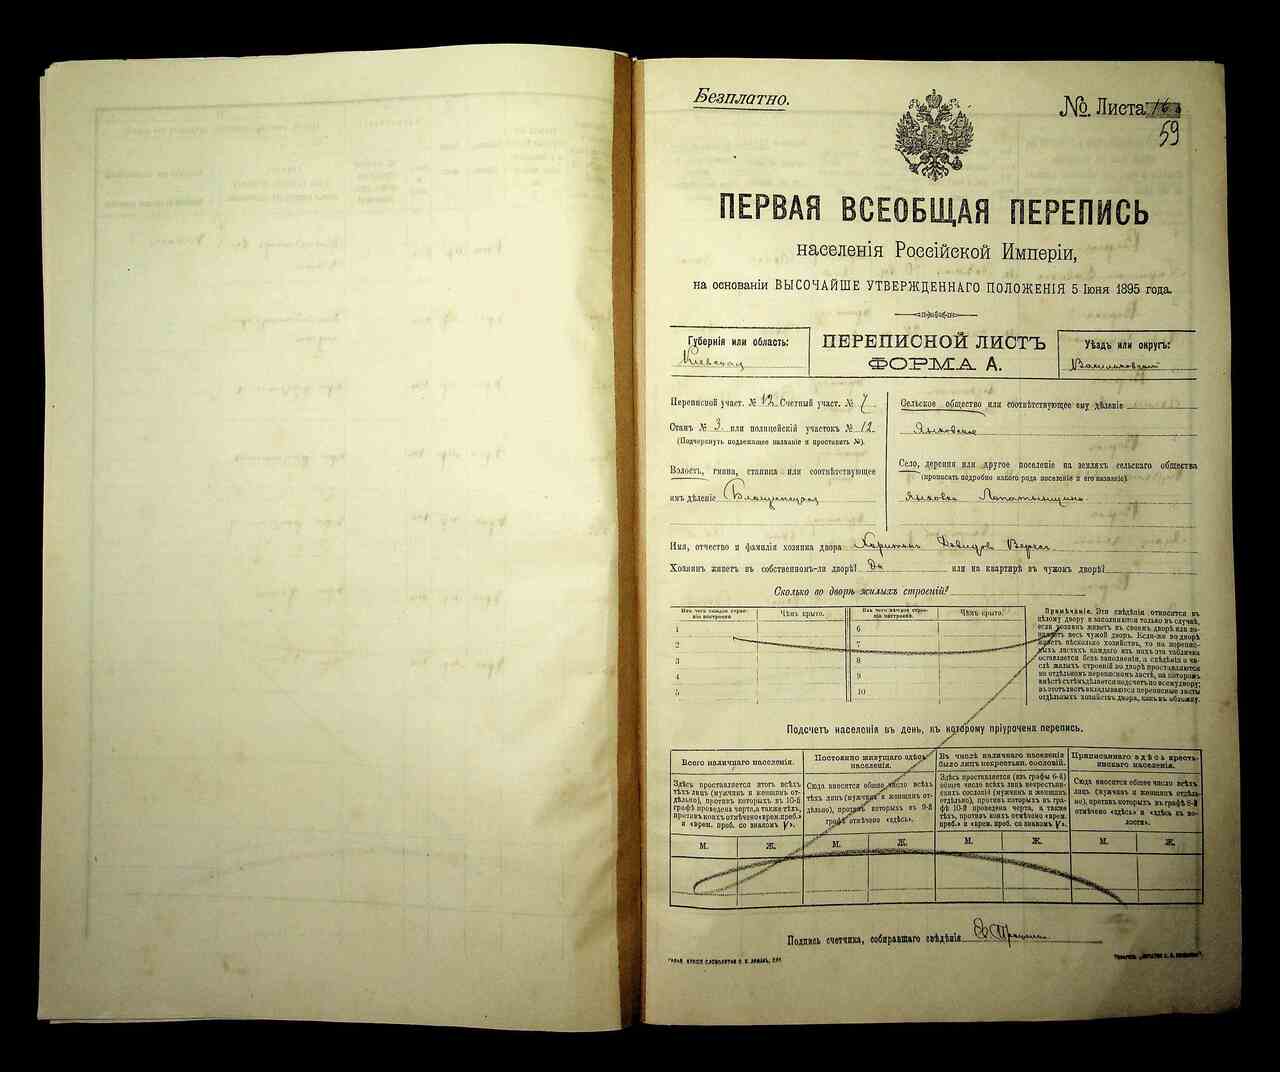 Безплатно.
№. Листа
59
ПЕРВАЯ ВСЕОБЩАЯ ПЕРЕПИСЬ
населенія Россійской Имперіи,
на основаніи ВЫСОЧАЙШЕ УТВЕРЖДЕННАГО ПОЛОЖЕНІЯ 5 Іюня 1895 года.
Губернія или область:
Кіевская
ПЕРЕПИСНОЙ ЛИСТЪ
ФОРМА А.
Уѣздъ или округъ:
Васильковскій
Переписной участ. № 12 Счетный участ. № 7
Станъ № 3. или полицейскій участокъ № 12.
(Подчеркнуть подлежащее названіе и проставить №).
Волость, гмина, станица или соотвѣтствующее
имъ дѣленіе
Сельское общество или соотвѣтствующее ему дѣленіе
Село, деревня или другое поселеніе на земляхъ сельскаго общества
(прописать подробно какого рода поселеніе и его названіе)
Имя, отчество и фамилія хозяина двора Харитонъ Давидовъ
Хозяинъ живетъ въ собственномъ-ли дворѣ? Да или на квартирѣ въ чужомъ дворѣ?
Сколько во дворѣ жилыхъ строеній?
Изъ чего каждое строеніе построено. Чѣмъ крыто. Изъ чего каждое строеніе построено. Чѣмъ крыто.
1 6
2 7
3 8
4 9
5 10
Примѣчаніе. Эти свѣдѣнія относятся къ
цѣлому двору и заполняются только въ случаѣ,
если хозяинъ живетъ въ своемъ дворѣ или
весь чужой дворъ. Если-же во дворѣ
нѣсколько хозяйствъ, то на
листахъ каждаго изъ нихъ эта табличка
оставляется безъ заполненія, а свѣдѣнія о
жилыхъ строеній во дворѣ проставляются
на отдѣльномъ переписномъ листѣ, на которомъ
вмѣстѣ съ тѣмъ дѣлается подсчетъ по всему двору;
въ этотъ листъ вкладываются переписные листы
отдѣльныхъ хозяйствъ двора, какъ въ обложку.
Подсчетъ населенія въ день, къ которому пріурочена перепись.
Всего наличнаго населенія.
Здѣсь проставляется итогъ всѣхъ
тѣхъ лицъ (мужчинъ и женщинъ отдѣльно),
противъ которыхъ въ 10-й
графѣ проведена черта, а также тѣхъ,
противъ коихъ отмѣчено «врем. преб.»
и «врем. преб. со знакомъ V».
Постоянно живущаго здѣсь
населенія.
Сюда вносится общее число всѣхъ
тѣхъ лицъ (мужчинъ и женщинъ отдѣльно),
противъ которыхъ въ 9-й
графѣ отмѣчено «здѣсь».
Въ числѣ наличнаго населенія
было лицъ некрестьян. сословій.
Здѣсь проставляется (изъ графы 6-й)
общее число всѣхъ лицъ некрестьянскихъ
сословій (мужчинъ и женщинъ
отдѣльно), противъ которыхъ въ графѣ
10-й проведена черта, а также
тѣхъ, противъ коихъ отмѣчено «врем.
преб.» и «врем. преб. со знакомъ V».
Приписаннаго здѣсь крестьянскаго населенія.
Сюда вносится общее число всѣхъ
лицъ (мужчинъ и женщинъ отдѣльно),
противъ которыхъ въ графѣ 8-й
отмѣчено «здѣсь» и «здѣсь въ волости».
М. Ж. М. Ж. М. Ж. М. Ж.
Подпись счетчика, собиравшаго свѣдѣнія